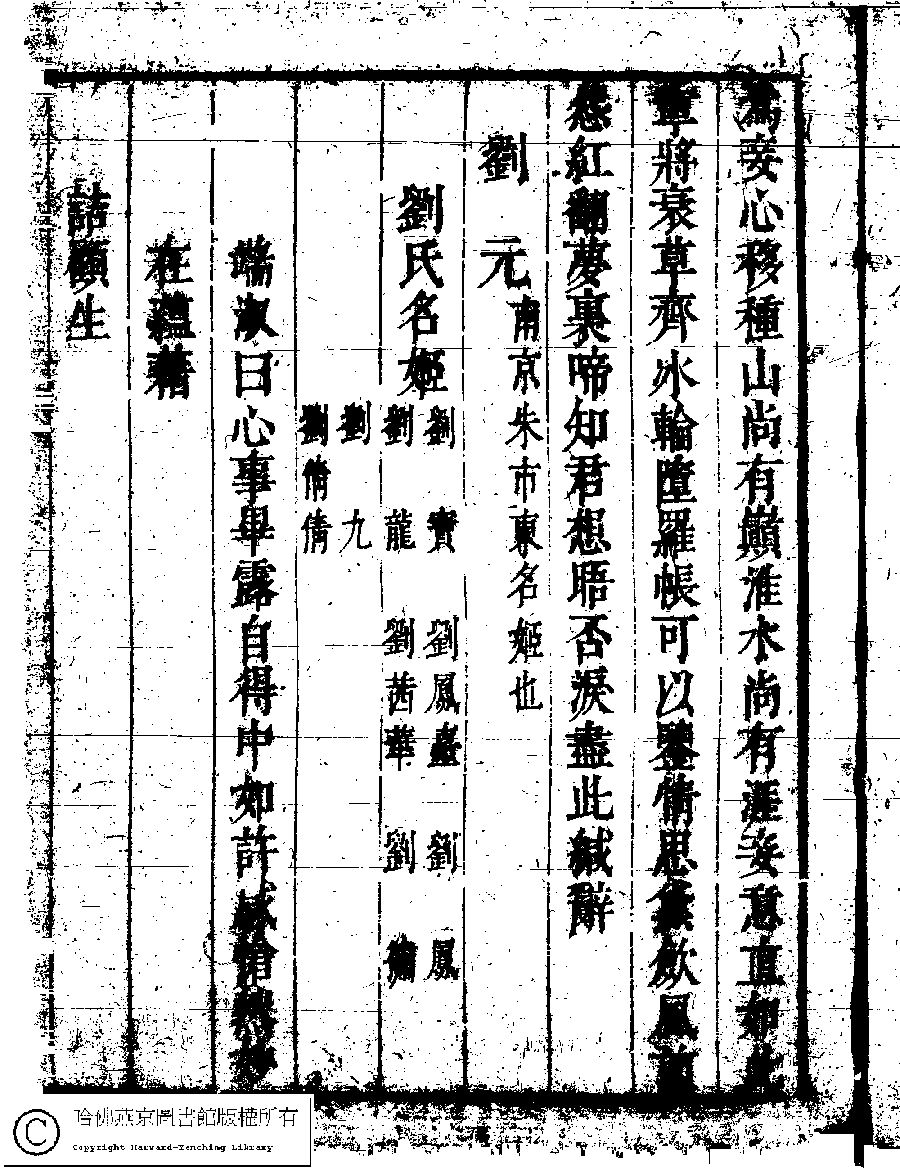 為妾心移種山尚有巔淮水尚有涯妾意直如此
章將衰草齊冰輪墮羅帳可以鑒情思衾欹風
愁紅翻夢裏啼知君想晤否淚盡此緘辭
劉元 南京朱市東名姬也
劉氏名姬 劉寶 劉鳳臺 劉鳳
劉龍 劉茜華 劉
劉九
劉倩倩
端淑曰心事畢露自得中如許感愴熱
在蘊藉
詰顧生
哈佛燕京圖書館版權所有
Copyright Harvard-Yenching Library